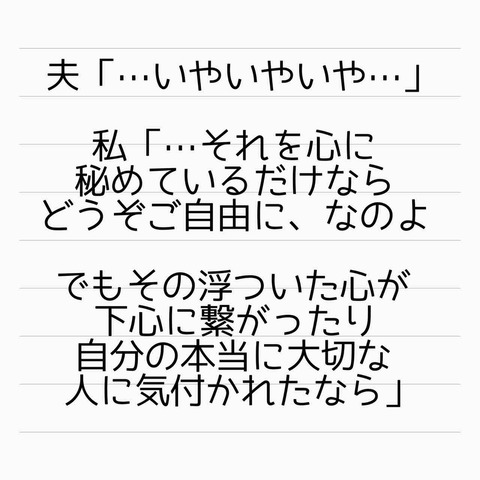 夫「…いやいやいや…」
私「…それを心に
秘めているだけなら
どうぞご自由に、なのよ
でもその浮ついた心が
下心に繋がったり
自分の本当に大切な
人に気付かれたなら」